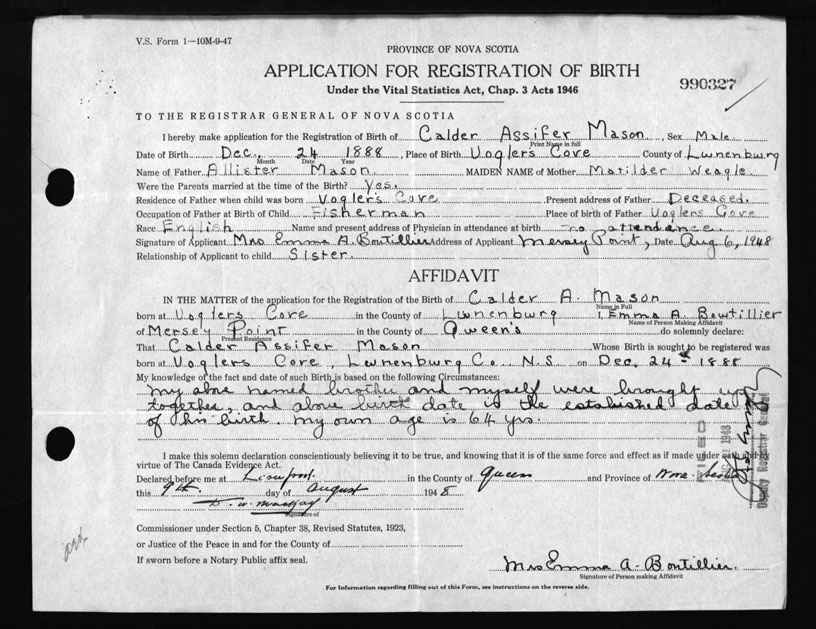 V.S. Form 1—10M-9-47
PROVINCE OF NOVA SCOTIA
APPLICATION FOR REGISTRATION OF BIRTH
990327
Under the Vital Statistics Act, Chap. 3 Acts 1946
TO THE REGISTRAR GENERAL OF NOVA SCOTIA
I hereby make application for the Registration of Birth of Calder Assifer Mason, Sex Male
Print Name in full
Date of Birth Dec, 24 1888, Place of Birth Voglers Cove County of Lunenburg
Month Date Year
Name of Father Allister Mason. MAIDEN NAME of Mother Matilder Weagle
Were the Parents married at the time of the Birth? Yes.
Residence of Father when child was born Voglers Cove Present address of Father Deceased.
Occupation of Father at Birth of Child Fisherman Place of birth of Father Voglers Cove
Race English Name and present address of Physician in attendance at birth no attendance.
Signature of Applicant Mrs Emma A. Boutillier Address of Applicant Mersey Point, Date Aug 6, 1948
Relationship of Applicant to child Sister.
AFFIDAVIT
IN THE MATTER of the application for the Registration of the Birth of Calder A. Mason
Name in Full
born at Voglers Cove in the County of Lunenburg I, Emma A Boutillier
Name of Person Making Affidavit
of Mersey Point in the County of Queen's do solemnly declare:
Present Residence
That Calder Assifer Mason Whose Birth is sought to be registered was
born at Voglers Cove, Lunenburg Co. N.S. on Dec, 24 1888
My knowledge of the fact and date of such Birth is based on the following Circumstances:
My above named brother and myself were brought up
together, and above birth date is the established date
of his birth. My own age is 64 yrs.
I make this solemn declaration conscientiously believing it to be true, and knowing that it is of the same force and effect as if made under oath and by
virtue of The Canada Evidence Act.
Declared before me at Liverpool in the County of Queen and Province of Nova Scotia
this 9th day of August 1948
D. W. MacKay
Signature of
Commissioner under Section 5, Chapter 38, Revised Statutes, 1923,
or Justice of the Peace in and for the County of
If sworn before a Notary Public affix seal.
Mrs Emma A. Boutillier.
Signature of Person making Affidavit
For Information regarding filling out of this Form, see instructions on the reverse side.
FILED
AUG 21 1948
Deputy Registrar General